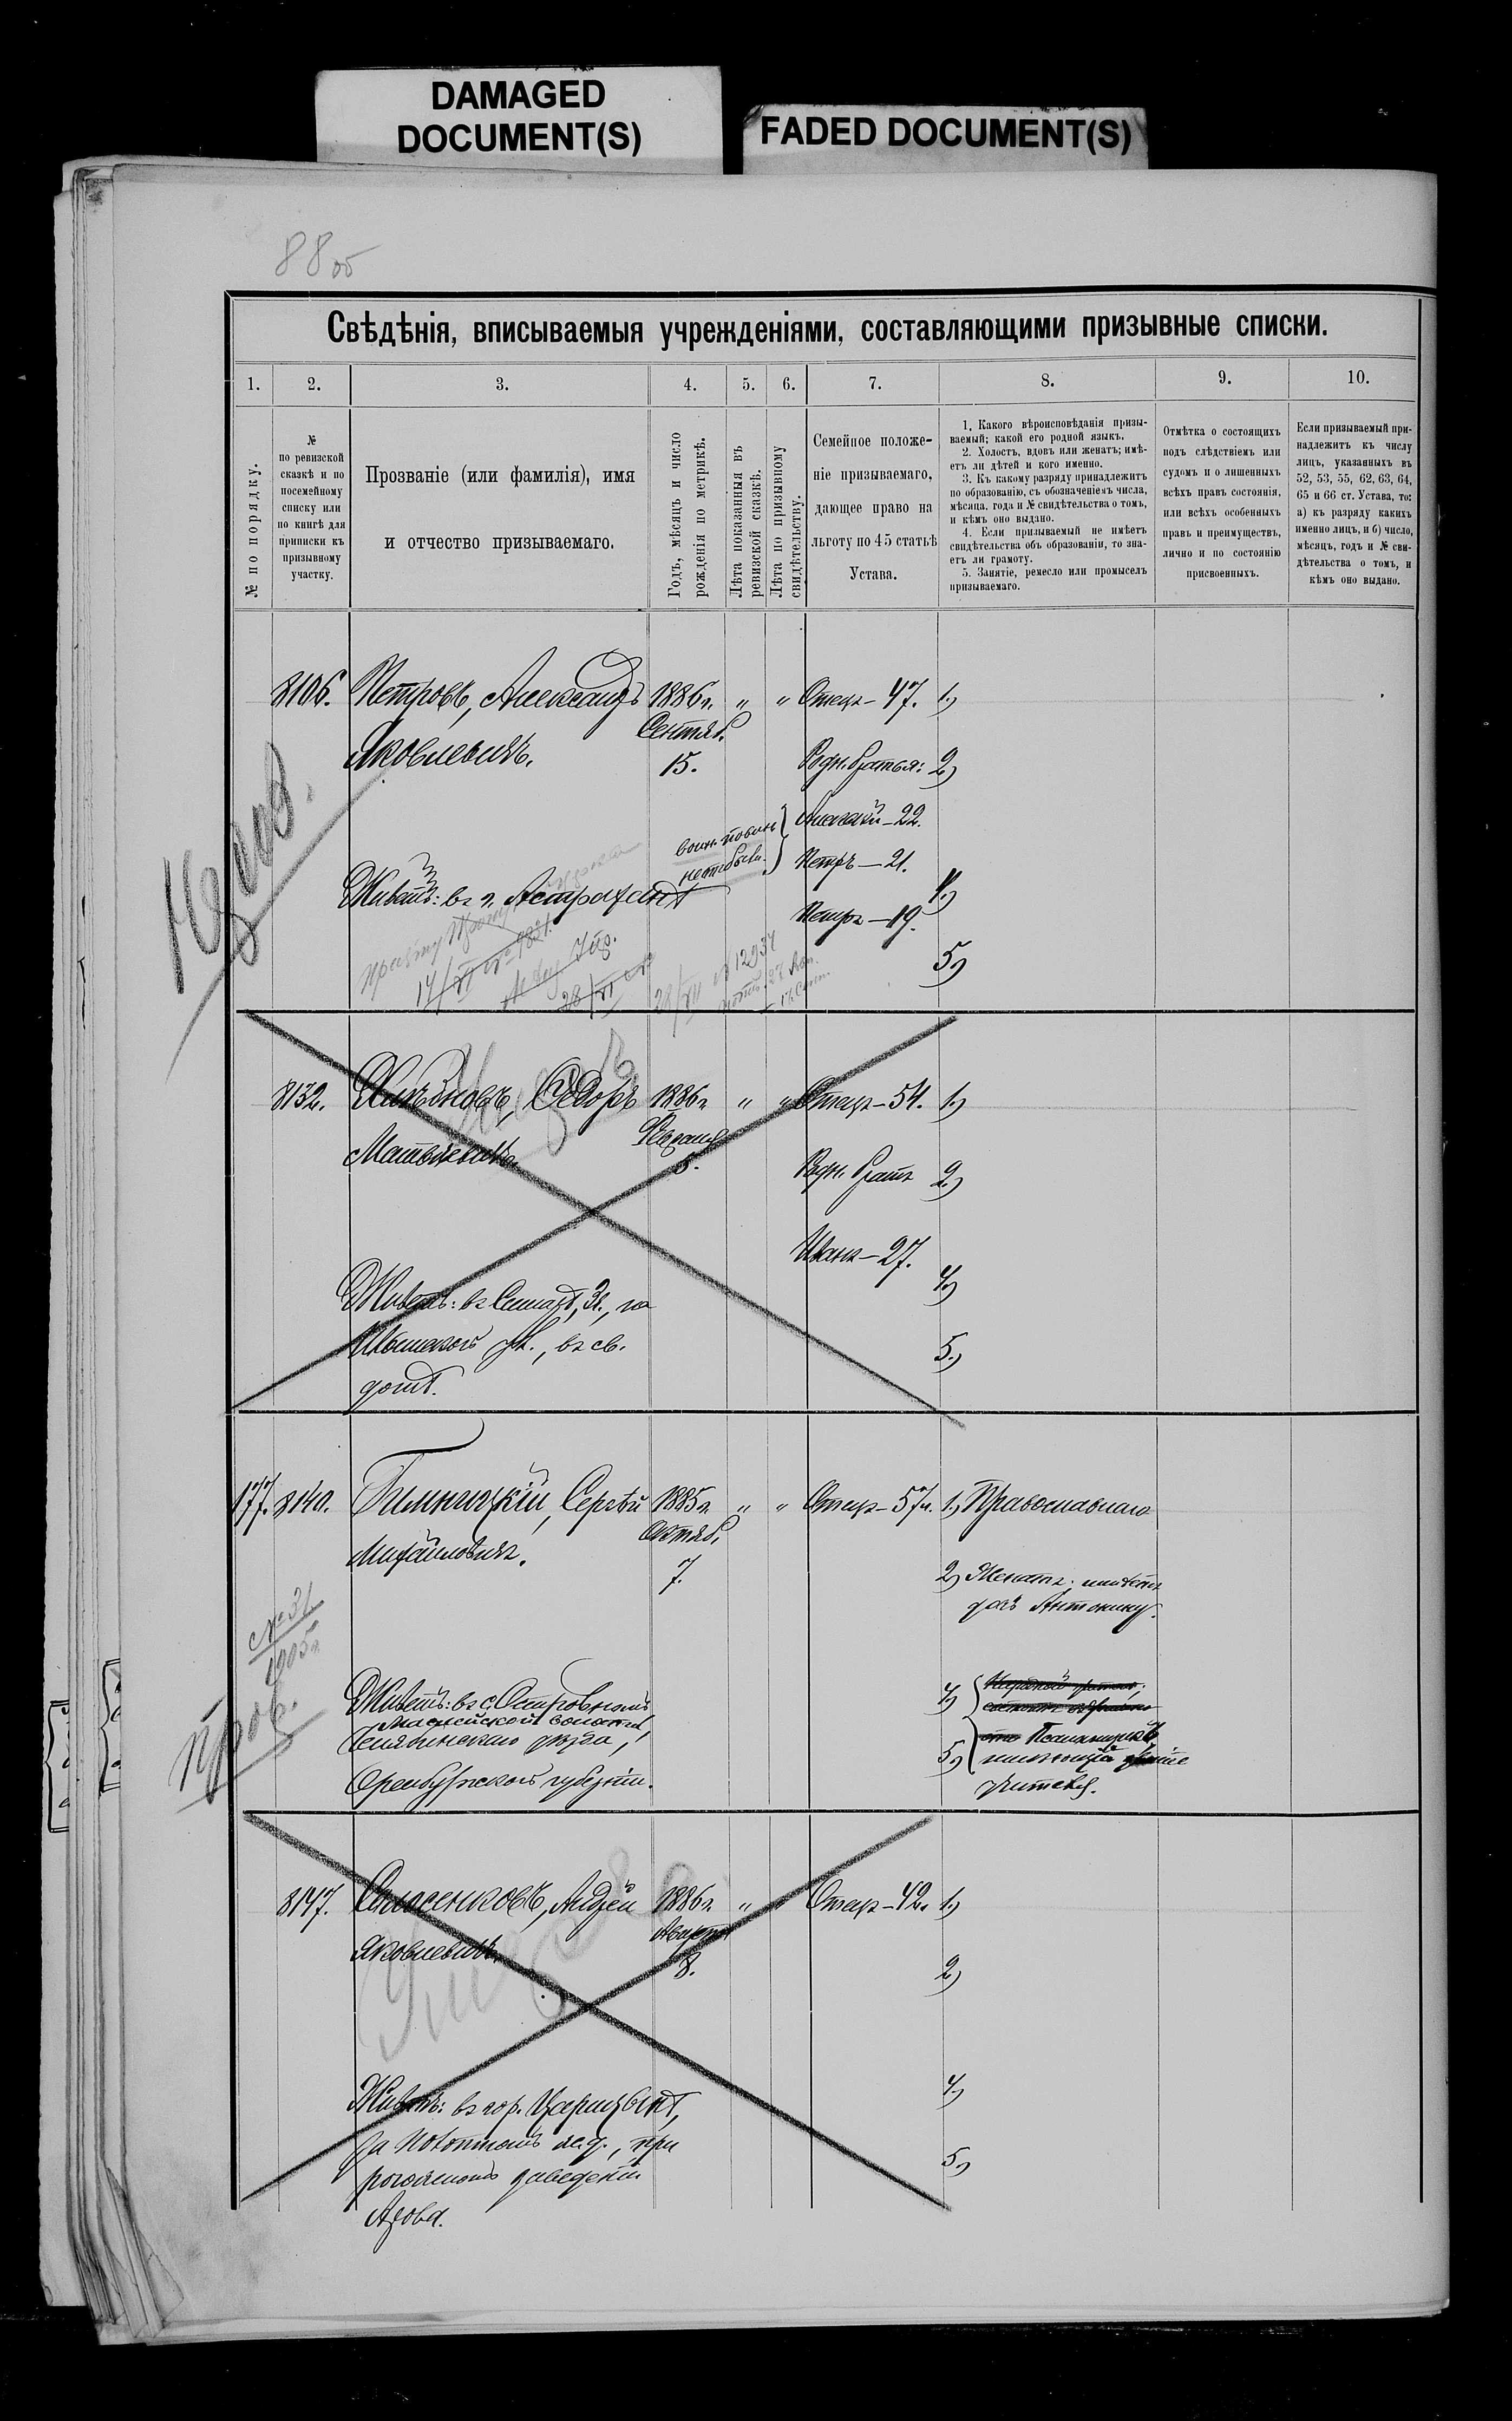 DAMAGED
DOCUMENT(S)
FADED DOCUMENT(S)
88 об
Свѣдѣнія, вписываемыя учрежденіями, составляющими призывные списки.
1. 2. 3. 4. 5. 6. 7. 8. 9. 10.
№ по порядку.
№
по ревизской
сказкѣ и по
посемейному
списку или
по книгѣ для
приписки къ
призывному
участку.
Прозваніе (или фамилія), имя
и отчество призываемаго.
Годъ, мѣсяцъ и число
рожденія по метрикѣ.
Лѣта показанныя въ
ревизской сказкѣ.
Лѣта по призывному
свидѣтельству.
Семейное положе-
ніе призываемаго,
дающее право на
льготу по 45 статьѣ
Устава.
1. Какого вѣроисповѣданія призы-
ваемый; какой его родной языкъ.
2. Холостъ, вдовъ или женатъ; имѣ-
етъ ли дѣтей и кого именно.
3. Къ какому разряду принадлежитъ
по образованію, съ обозначеніемъ числа,
мѣсяца, года и № свидѣтельства о томъ,
и кѣмъ оно выдано.
4. Если призываемый не имѣетъ
свидѣтельства объ образованіи, то зна-
етъ ли грамоту.
5. Занятіе, ремесло или промыселъ
призываемаго.
Отмѣтка о состоящихъ
подъ слѣдствіемъ или
судомъ и о лишенныхъ
всѣхъ правъ состоянія,
или всѣхъ особенныхъ
правъ и преимуществъ,
лично и по состоянію
присвоенныхъ.
Если призываемый при-
надлежитъ къ числу
лицъ, указанныхъ въ
52, 53, 55, 62, 63, 64,
65 и 66 ст. Устава, то:
а) къ разряду какихъ
именно лицъ, и б) число,
мѣсяцъ, годъ и № сви-
дѣтельства о томъ, и
кѣмъ оно выдано.
8106. Петровъ, Александръ 1886 г. " " Отецъ – 47. 1)
Сентяб.
Яковлевичъ. 15. Родн. братья: 2)
Алексѣй – 22.
воин. повин.
Петръ – 21.
Живетъ: въ г. Астрахани 4)
Петръ – 19.
5)
17/XI № 9821.
28/XI
№ 12934
8132. Ѳедоръ 1886 г. " " Отецъ – 54. 1)
Февраля
Матвѣевичъ 8. Родн. братъ 2)
Иванъ – 27.
4)
Живетъ: въ
въ св. 5)
домѣ.
177. 8140. Гилиницкій, Сергѣй 1885 г. " " Отецъ – 57 л. 1) Православнаго
Октяб.
Михайловичъ. 7.
2) Женатъ; имѣетъ
дочь Антонину.
№ 31
1905 г.
Живетъ: въ с. Островномъ 4)
волости,
Челябинскаго уѣзда, Псаломщикъ,
Оренбургской губерніи. 5) имѣющій званіе
учителя.
Пров.
8147. Андрей 1886 г. " " Отецъ – 42. 1)
Августа
Яковлевичъ 8. 2)
4)
Живетъ: въ гор. Царицынѣ,
при 5)
заведеніи